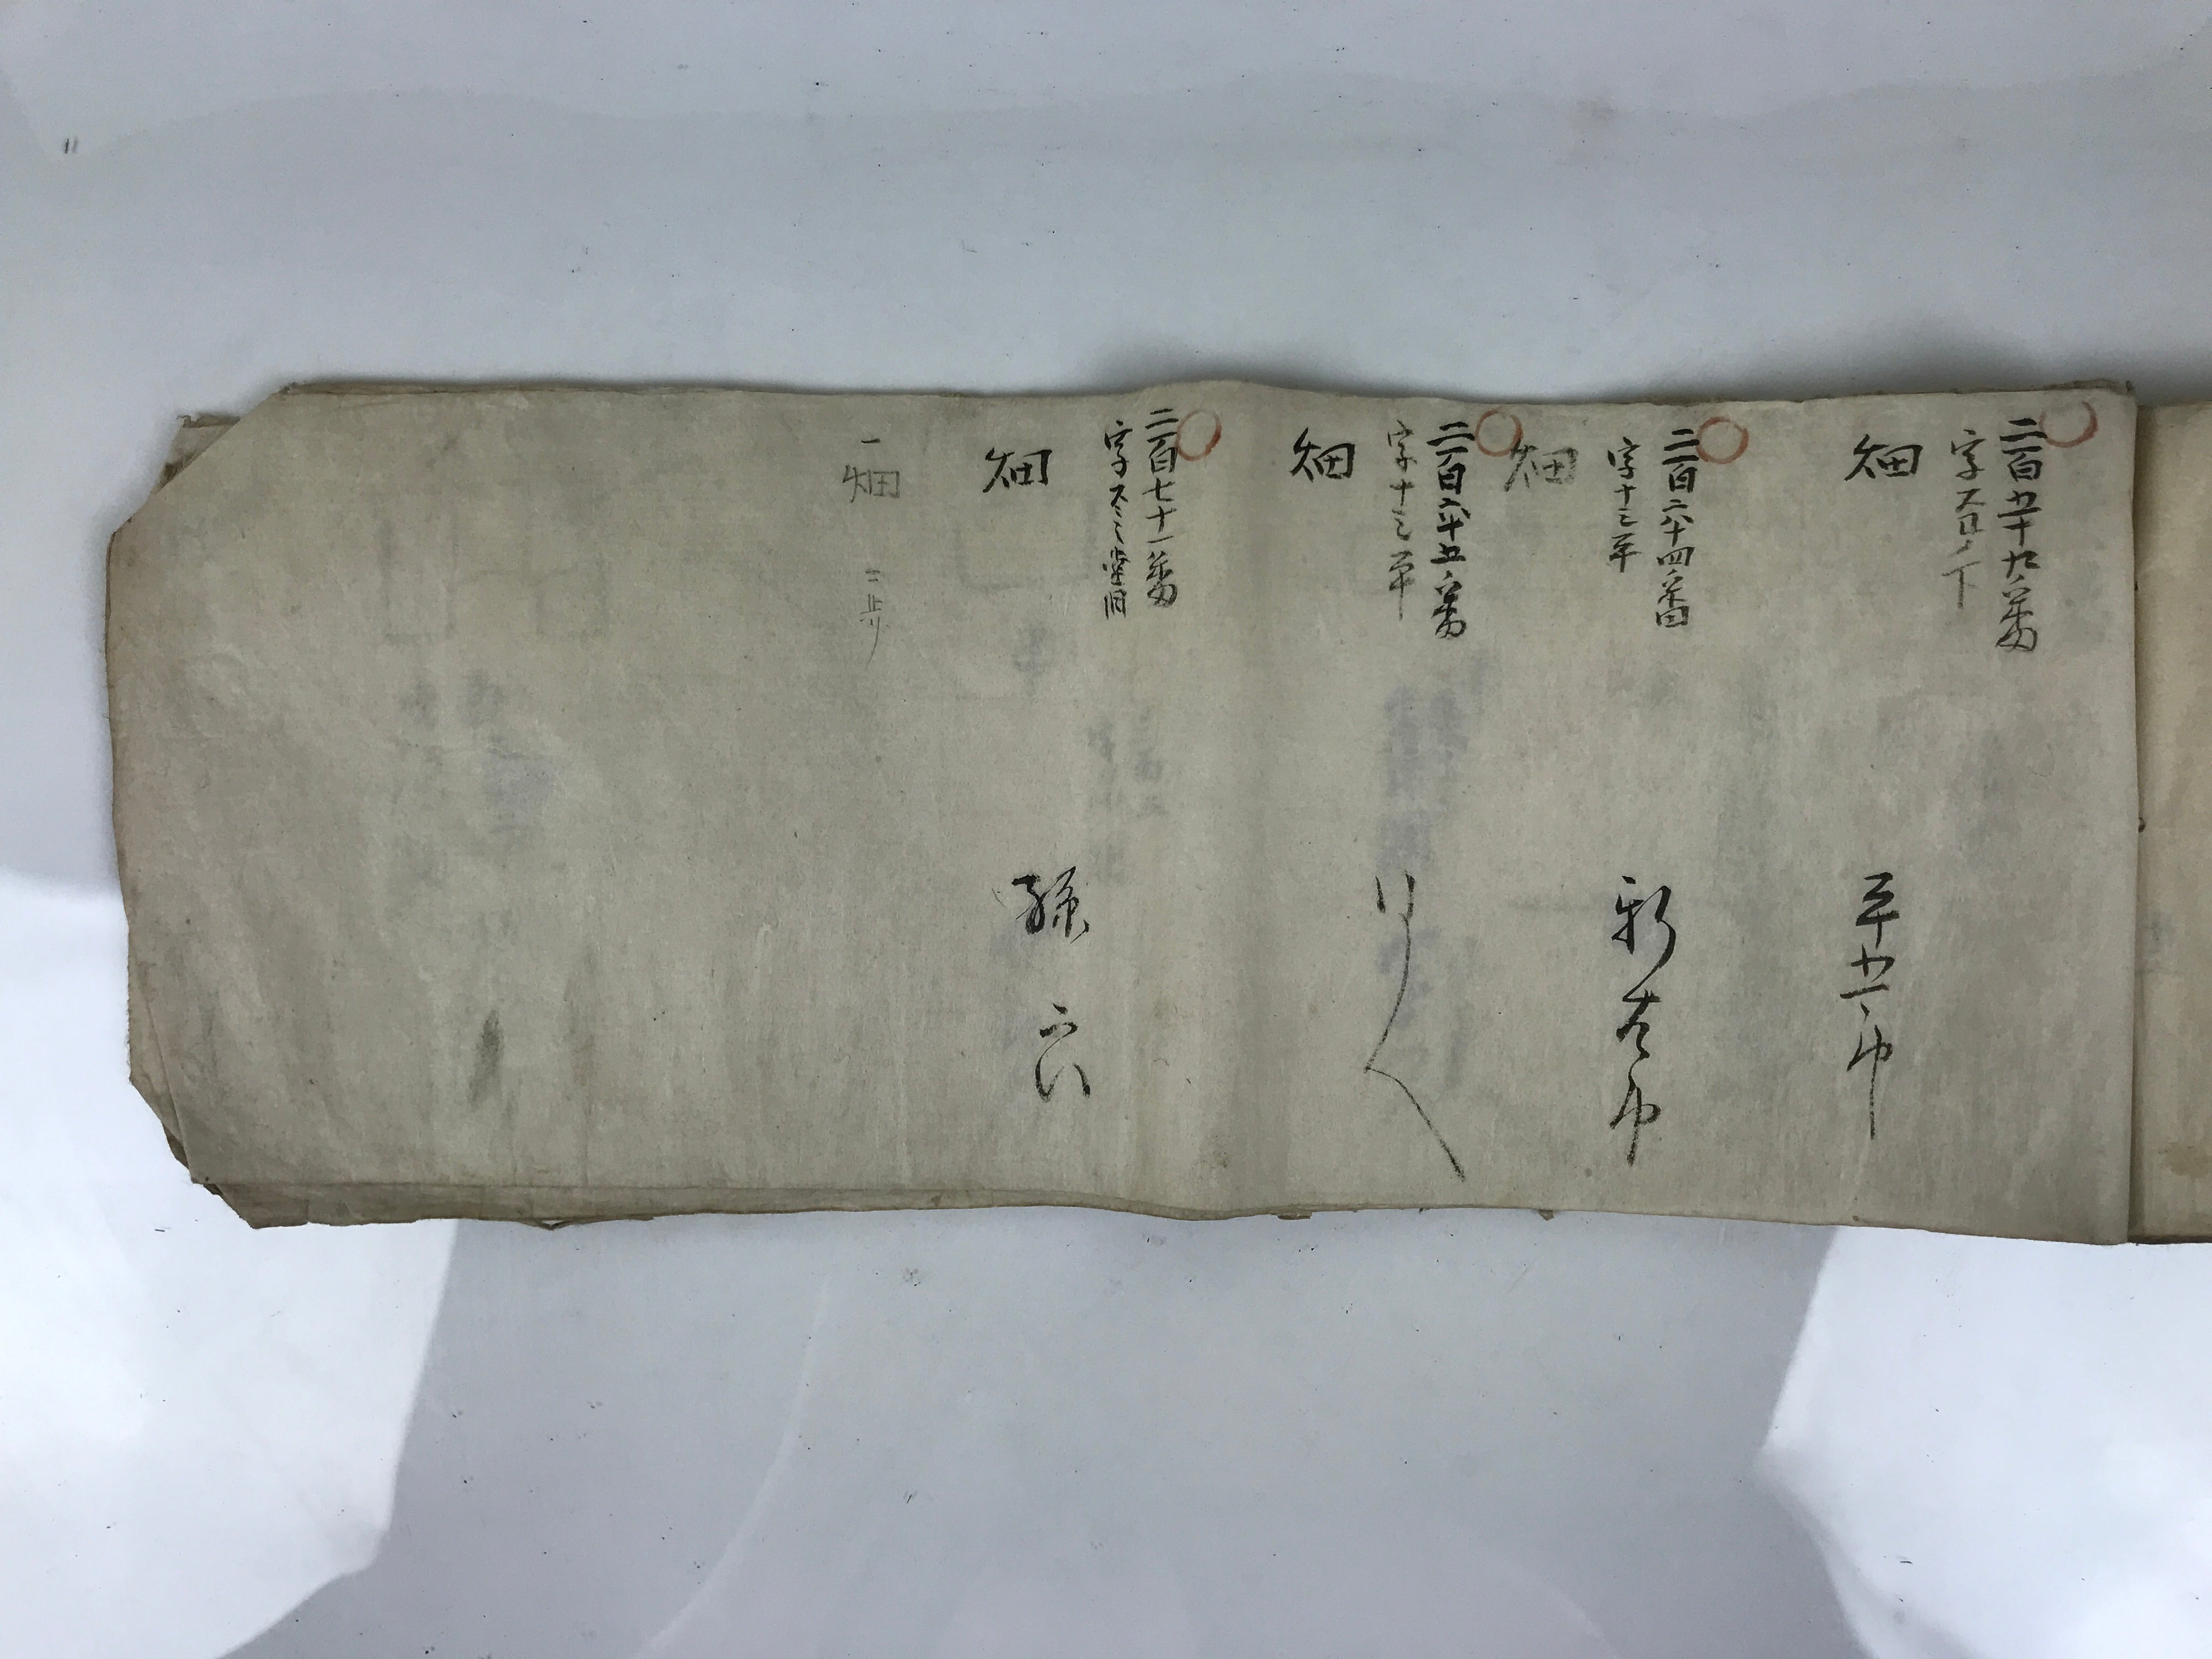 二百五十九番
字スロノ下
畑
平右衛門
二百六十四番
字十三平
畑
新左衛門
二百六十五番
字十三平
畑
同人
二百七十一番
字スミ
畑
孫六
一畑 二歩